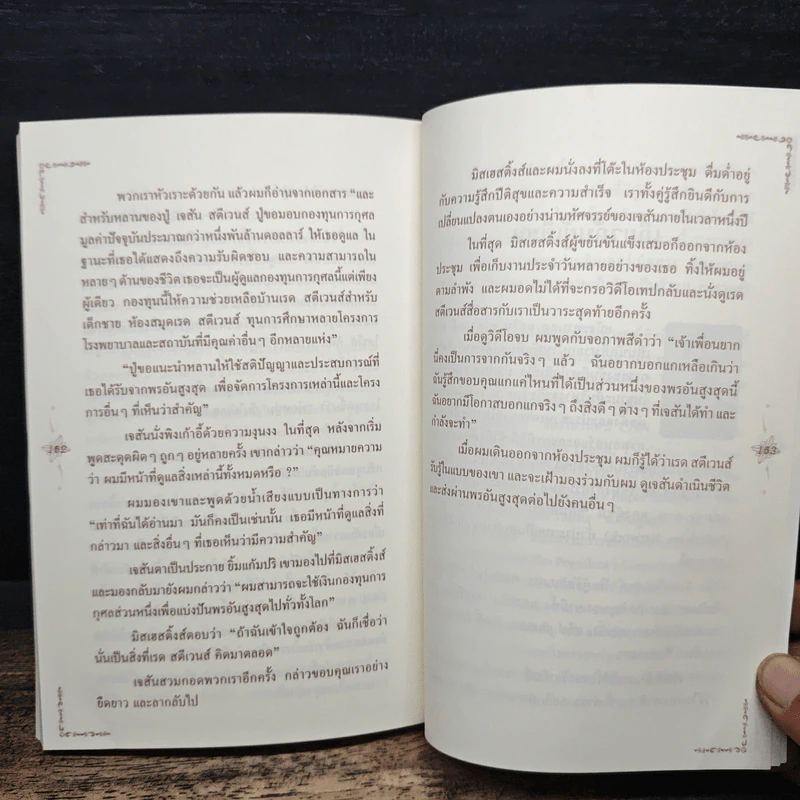 พวกเราหัวเราะด้วยกัน แล้วผมก็อ่านจากเอกสาร “และ
สำหรับหลานของปู่ เจสัน สตีเวนส์ ปู่ขอมอบกองทุนการกุศล
มูลค่าปัจจุบันประมาณกว่าหนึ่งพันล้านดอลลาร์ ให้เธอดูแล ใน
ฐานะที่เธอได้แสดงถึงความรับผิดชอบ และความสามารถใน
หลายๆ ด้านของชีวิต เธอจะเป็นผู้ดูแลกองทุนการกุศลนี้แต่เพียง
ผู้เดียว กองทุนนี้ให้ความช่วยเหลือบ้านเรด สตีเวนส์สำหรับ
เด็กชาย ห้องสมุดเรด สตีเวนส์ ทุนการศึกษาหลายโครงการ
โรงพยาบาลและสถาบันที่มีคุณค่าอื่นๆ อีกหลายแห่ง”
“ปู่ขอแนะนำหลานให้ใช้สติปัญญาและประสบการณ์ที่
เธอได้รับจากพรอันสูงสุด เพื่อจัดการโครงการเหล่านี้และโครง
การอื่นๆ ที่เห็นว่าสำคัญ”
เจสันนั่งพิงเก้าอี้ด้วยความงุนงง ในที่สุด หลังจากเริ่ม
พูดสะดุดผิดๆ ถูกๆ อยู่หลายครั้ง เขากล่าวว่า “คุณหมายความ
ว่า ผมมีหน้าที่ดูแลสิ่งเหล่านี้ทั้งหมดหรือ ?”
ผมมองเขาและพูดด้วยน้ำเสียงแบบเป็นทางการว่า
“เท่าที่ฉันได้อ่านมา มันก็คงเป็นเช่นนั้น เธอมีหน้าที่ดูแลสิ่งที่
กล่าวมา และสิ่งอื่นๆ ที่เธอเห็นว่ามีความสำคัญ”
เจสันตาเป็นประกาย ยิ้มแก้มปริ เขามองไปที่มิสเฮสติ้งส์
และมองกลับมายังผมกล่าวว่า “ผมสามารถจะใช้เงินกองทุนการ
กุศลส่วนหนึ่งเพื่อแบ่งปันพรอันสูงสุดไปทั่วทั้งโลก”
มิสเฮสติ้งส์ตอบว่า “ถ้าฉันเข้าใจถูกต้อง ฉันก็เชื่อว่า
นั่นเป็นสิ่งที่เรด สตีเวนส์ คิดมาตลอด”
เจสันสวมกอดพวกเราอีกครั้ง กล่าวขอบคุณเราอย่าง
ยืดยาว และลากลับไป
152
มิสเฮสติ้งส์และผมนั่งลงที่โต๊ะในห้องประชุม ดื่มด่ำอยู่
กับความรู้สึกปีติสุขและความสำเร็จ เราทั้งคู่รู้สึกยินดีกับการ
เปลี่ยนแปลงตนเองอย่างน่ามหัศจรรย์ของเจสันภายในเวลาหนึ่งปี
ในที่สุด มิสเฮสติ้งส์ผู้ขยันขันแข็งเสมอก็ออกจากห้อง
ประชุม เพื่อเก็บงานประจำวันหลายอย่างของเธอ ทิ้งให้ผมอยู่
ตามลำพัง และผมอดไม่ได้ที่จะกรอวิดีโอเทปกลับและนั่งดูเรด
สตีเวนส์สื่อสารกับเราเป็นวาระสุดท้ายอีกครั้ง
เมื่อดูวิดีโอจบ ผมพูดกับจอภาพสีดำว่า “เจ้าเพื่อนยาก
นี่คงเป็นการจากกันจริงๆ แล้ว ฉันอยากบอกแกเหลือเกินว่า
ฉันรู้สึกขอบคุณแกแค่ไหนที่ได้เป็นส่วนหนึ่งของพรอันสูงสุดนี้
ฉันอยากมีโอกาสบอกแกจริงๆ ถึงสิ่งดีๆ ต่างๆ ที่เจสันได้ทำ และ
กำลังจะทำ”
เมื่อผมเดินออกจากห้องประชุม ผมก็รู้ได้ว่าเรด สตีเวนส์
รับรู้ในแบบของเขา และจะเฝ้ามองร่วมกับผม ดูเจสันดำเนินชีวิต
และส่งผ่านพรอันสูงสุดต่อไปยังคนอื่นๆ
153